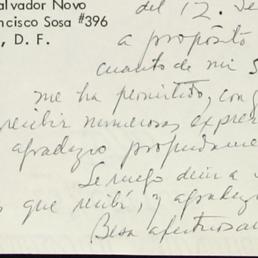 alvador Novo
ncisco Sosa #396
, D. F.
del 12. De
a propósito
cuanto de mi S
me ha permitido, con g
recibir numerosas expre
agradezco profundame
Le ruego decir a
s que recibí, y agradezco
Besa afectuosa